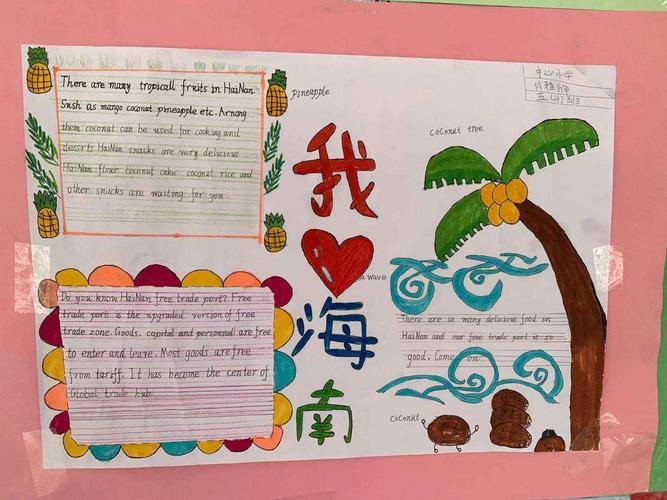 There are many tropicall fruits in HaiNan.
Sush as mango coconut pineapple etc. Arnang
them coconut can be used for cooking and
dessrts HaiNan snacks are very delicious
HaiNan flour coconut cake coconut rice and
other snucks are waiting for you.
pineapple
中心小学
五(4)
coconut tree
我
海
南
wave
Do you know HaiNan free trade port? Free
trade port is the upgraded version of free
trade zone. Goods. capital and personnel are free
to enter and leave. Most goods are free
from tariff. It has become the center of
Global trade hub.
There are so many delicious food in
HaiNan and our free trade port is so
good. Come on.
coconut